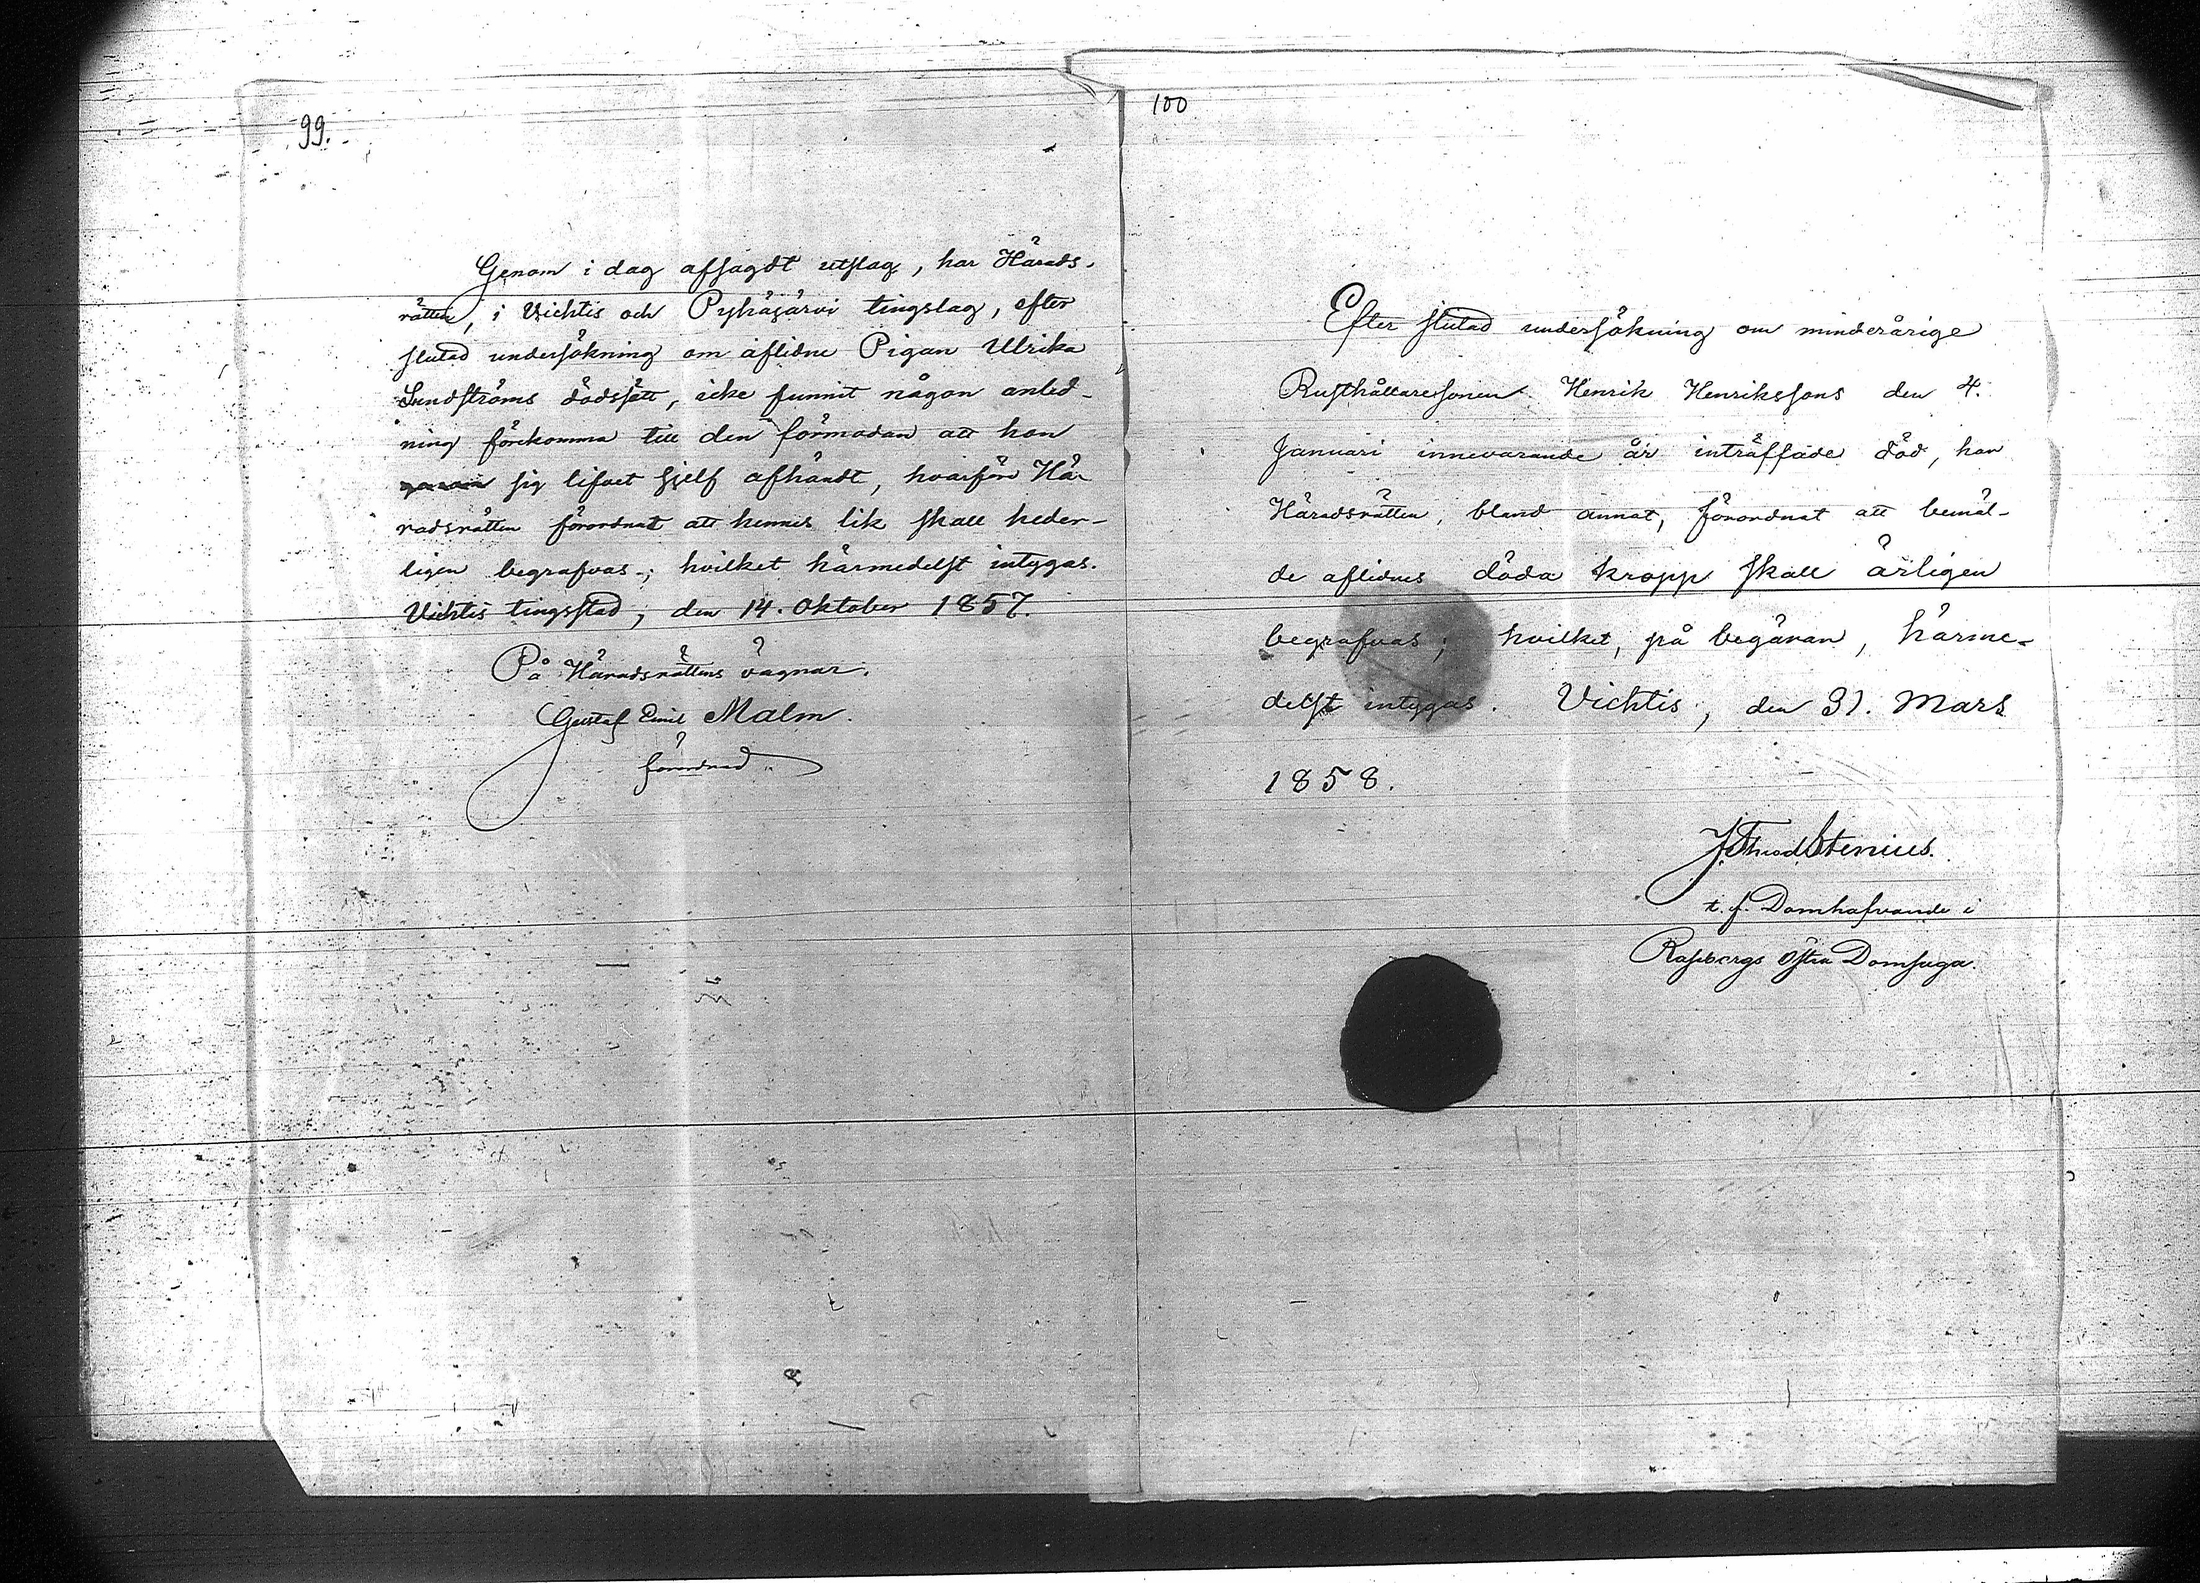 99.
Genom i dag afsagdt utslag, har Härads-
rätten, i Vichtis och Pyhäjärvi tingslag, efter
slutad undersökning om aflidne Pigan Ulrika
Sundströms dödssätt, icke funnit någon anled-
ning förekomma till den förmodan att hon
sig lifvet sjelf afhändt, hvarför Hä-
radsrätten förordnat att hennes lik skall heder-
ligen begrafvas; hvilket härmedelst intygas.
Vichtis tingsstad, den 14. Oktober 1857.
På Häradsrättens vägnar.
Gustaf Emil Malm.
förordnad
100
Efter slutad undersökning om minderårige
Rusthållaresonen Henrik Henrikssons den 4.
Januari innevarande år inträffade död, har
Häradsrätten, bland annat, förordnat att bemäl-
de aflidnes döda kropp skall ärligen
begrafvas; hvilket, på begäran, härme-
delst intygas. Vichtis, den 31. Mars
1858.
J. Theod Stenius.
t. f. Domhafvande i
Raseborgs Östra Domsaga.